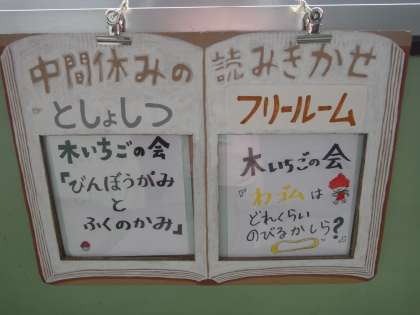 中間休みの 読みきかせ
としょしつ
木いちごの会
『びんぼうがみ
と
ふくのかみ』
フリールーム
木いちごの会
『わゴムは
どれくらい
のびるかしら?』